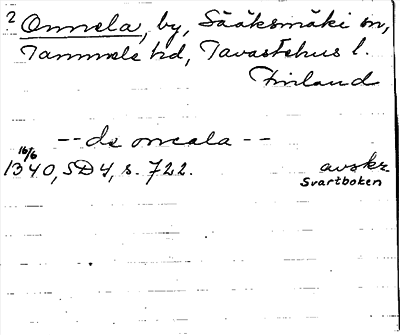 ? Onnela, by, Sääksmäki sn,
Tammela hd, Tavastehus l.
Finland
-- de onеala --
16/6
1340, SD 4, s. 722. avskr.
Svartboken